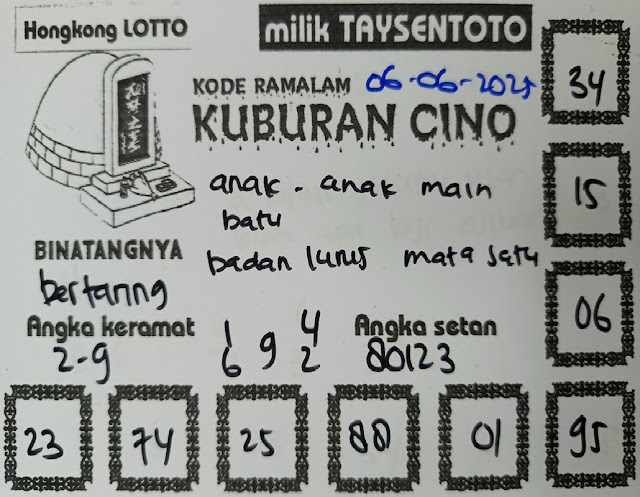 Hongkong LOTTO
milik TAYSENTOTO
KODE RAMALAM 06-06-2025
KUBURAN CINO
anak - anak main
batu
badan lurus mata satu
BINATANGNYA
bertaring
Angka keramat
2-9
1 4
6 9 2
Angka setan
80123
34
15
06
95
23 74 25 88 01